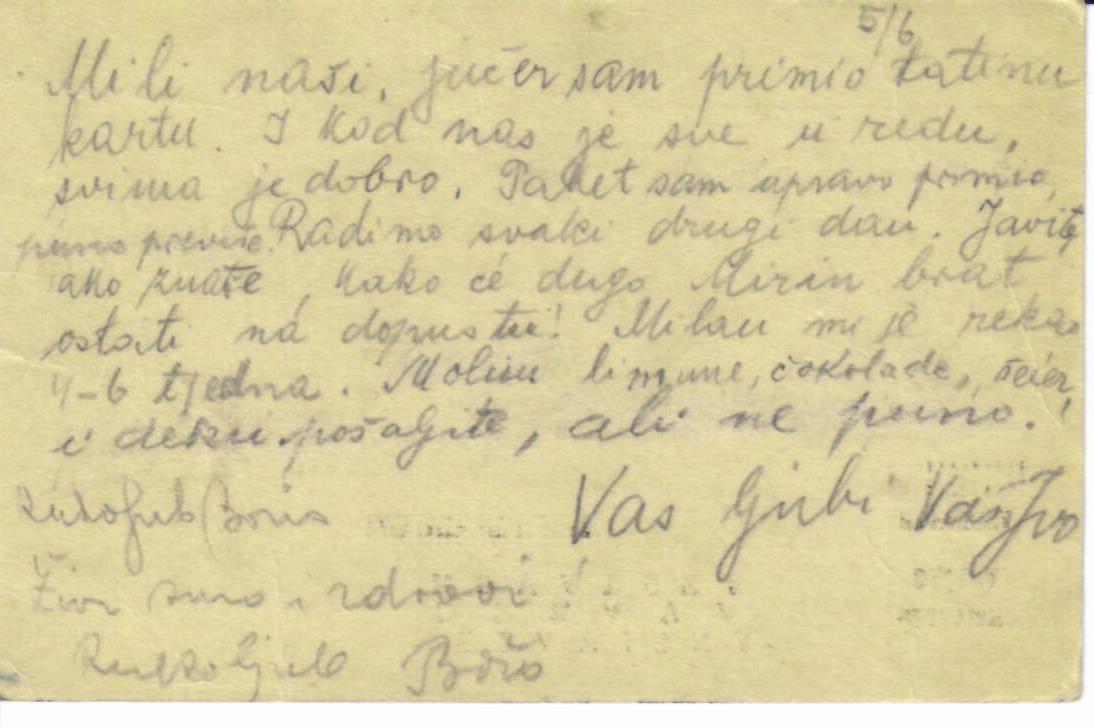 5/6
Mili naši, jučer sam primio tatinu
kartu. I kod nas je sve u redu,
svima je dobro. Paket sam upravo primio,
puno previše. Radimo svaki drugi dan. Javite
ako znate, kako će dugo Mirin brat
ostati na dopustu! Milan mi je rekao
4-6 tjedna. Molim limune, čokolade, šećer,
i deku pošaljite, ali ne puno!
Vas ljubi Vaš Ivo
Rukoljub Boris
Živi smo i zdravi!
Rukoljub Božo